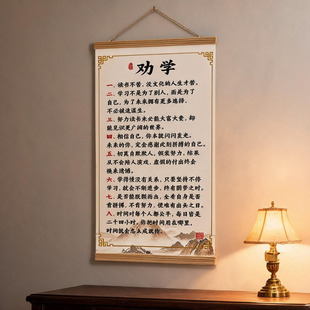 劝学
一、读书不苦，没文化的人生才苦。
二、学习不是为了别人，而是为了
自己，为了未来拥有更多选择，
不必被迫谋生。
三、努力读书未必能大富大贵，却
能见识更广阔的世界。
四、相信自己，你本就闪闪发光，
未来的你，定会感谢此刻拼搏的自己。
五、切莫自欺欺人，假装努力，结果
从不会陪人演戏，虚假的付出终会
换来遗憾。
六、学得慢没有关系，只要坚持不停
学习，就会不断进步，终有圆梦之时。
七、是节能脱颖而出，全看自身是否
肯拼搏，不肯努力，便难有出头之日。
八、时间对每个人都公平，每日皆是
二十四小时，你把时间用在哪里，
时间就会怎么成就你。